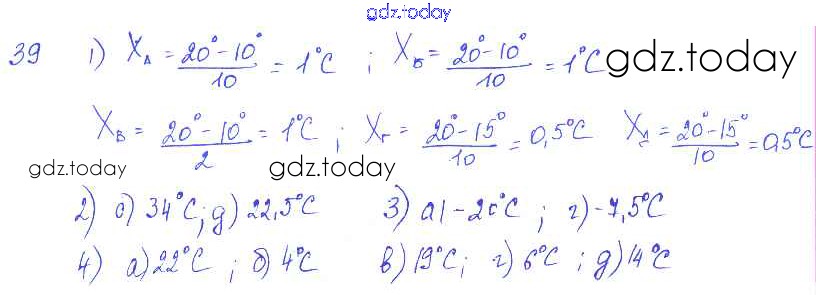 gdz.today
39 1) X_А = (20° - 10°)/10 = 1°C ; X_Б = (20° - 10°)/10 = 1°C gdz.today
X_В = (20° - 10°)/2 = 1°C ; X_Г = (20° - 15°)/10 = 0,5°C X_Д = (20° - 15°)/10 = 0,5°C
gdz.today gdz.today
2) 34°C; д) 22,5°C 3) а) -20°C ; г) -7,5°C
4) а) 22°C ; б) 4°C в) 19°C; г) 6°C ; д) 14°C